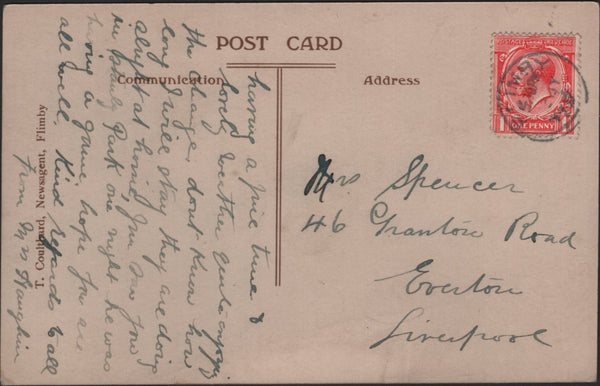 POST CARD
Communication
Address
having a fine time &
lovely weather quite enjoying
the change, dont know how
long I will stay they are doing
alright at home, Jim saw Tom
in Stanley Park one night he was
having a game, hope you are
all well, Kind regards to all
from Mrs
T. Coulthard, Newsagent, Flimby
Mrs Spencer
46 Granton Road
Everton
Liverpool
POSTAGE REVENUE
ONE PENNY